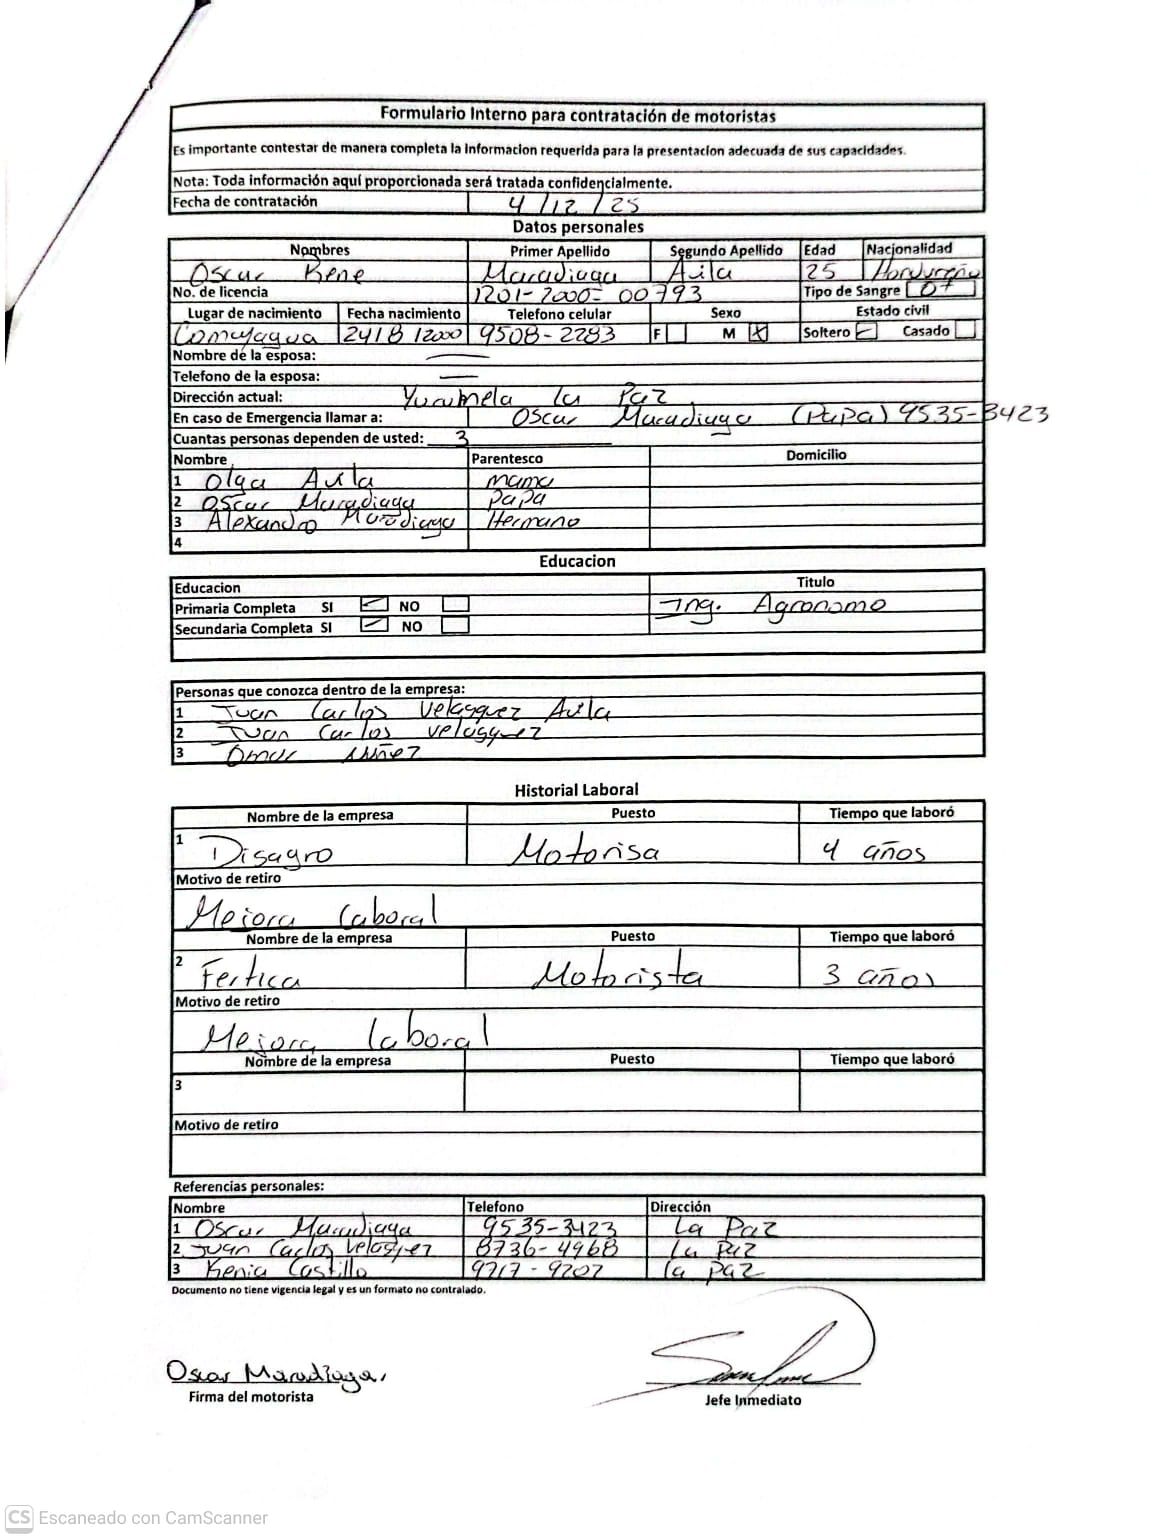 Formulario Interno para contratación de motoristas
Es importante contestar de manera completa la Informacion requerida para la presentacion adecuada de sus capacidades.
Nota: Toda información aquí proporcionada será tratada confidencialmente.
Fecha de contratación 4/12/25
Datos personales
Nombres Primer Apellido Segundo Apellido Edad Nacionalidad
Oscar Rene Maradiaga Avila 25 Hondureño
No. de licencia 1201-2000-00793 Tipo de Sangre O+
Lugar de nacimiento Fecha nacimiento Telefono celular Sexo Estado civil
Comayagua 9508-2283 F M X Soltero Casado
Nombre de la esposa:
Telefono de la esposa:
Dirección actual: Yarumela la Paz
En caso de Emergencia llamar a: Oscar Maradiaga (Papa) 9535-3423
Cuantas personas dependen de usted: 3
Nombre Parentesco Domicilio
1 Olga Avila mama
2 Oscar Maradiaga papa
3 Alexandro Maradiaga Hermano
4
Educacion
Educacion Titulo
Primaria Completa SI NO Ing. Agronomo
Secundaria Completa SI NO
Personas que conozca dentro de la empresa:
1 Juan Carlos Velasquez Avila
2 Juan Carlos velasquez
3 Omar Nuñez
Historial Laboral
Nombre de la empresa Puesto Tiempo que laboró
1 Disagro Motorisa 4 años
Motivo de retiro
Mejora laboral
Nombre de la empresa Puesto Tiempo que laboró
2 Fertica Motorista 3 años
Motivo de retiro
Mejora laboral
Nombre de la empresa Puesto Tiempo que laboró
3
Motivo de retiro
Referencias personales:
Nombre Telefono Dirección
1 Oscar Maradiaga 9535-3423 La Paz
2 Juan Carlos Velasquez 8736-4968 La Paz
3 Kenia Castillo 9717-9207 la paz
Documento no tiene vigencia legal y es un formato no contralado.
Oscar Maradiaga.
Firma del motorista Jefe Inmediato
CS Escaneado con CamScanner